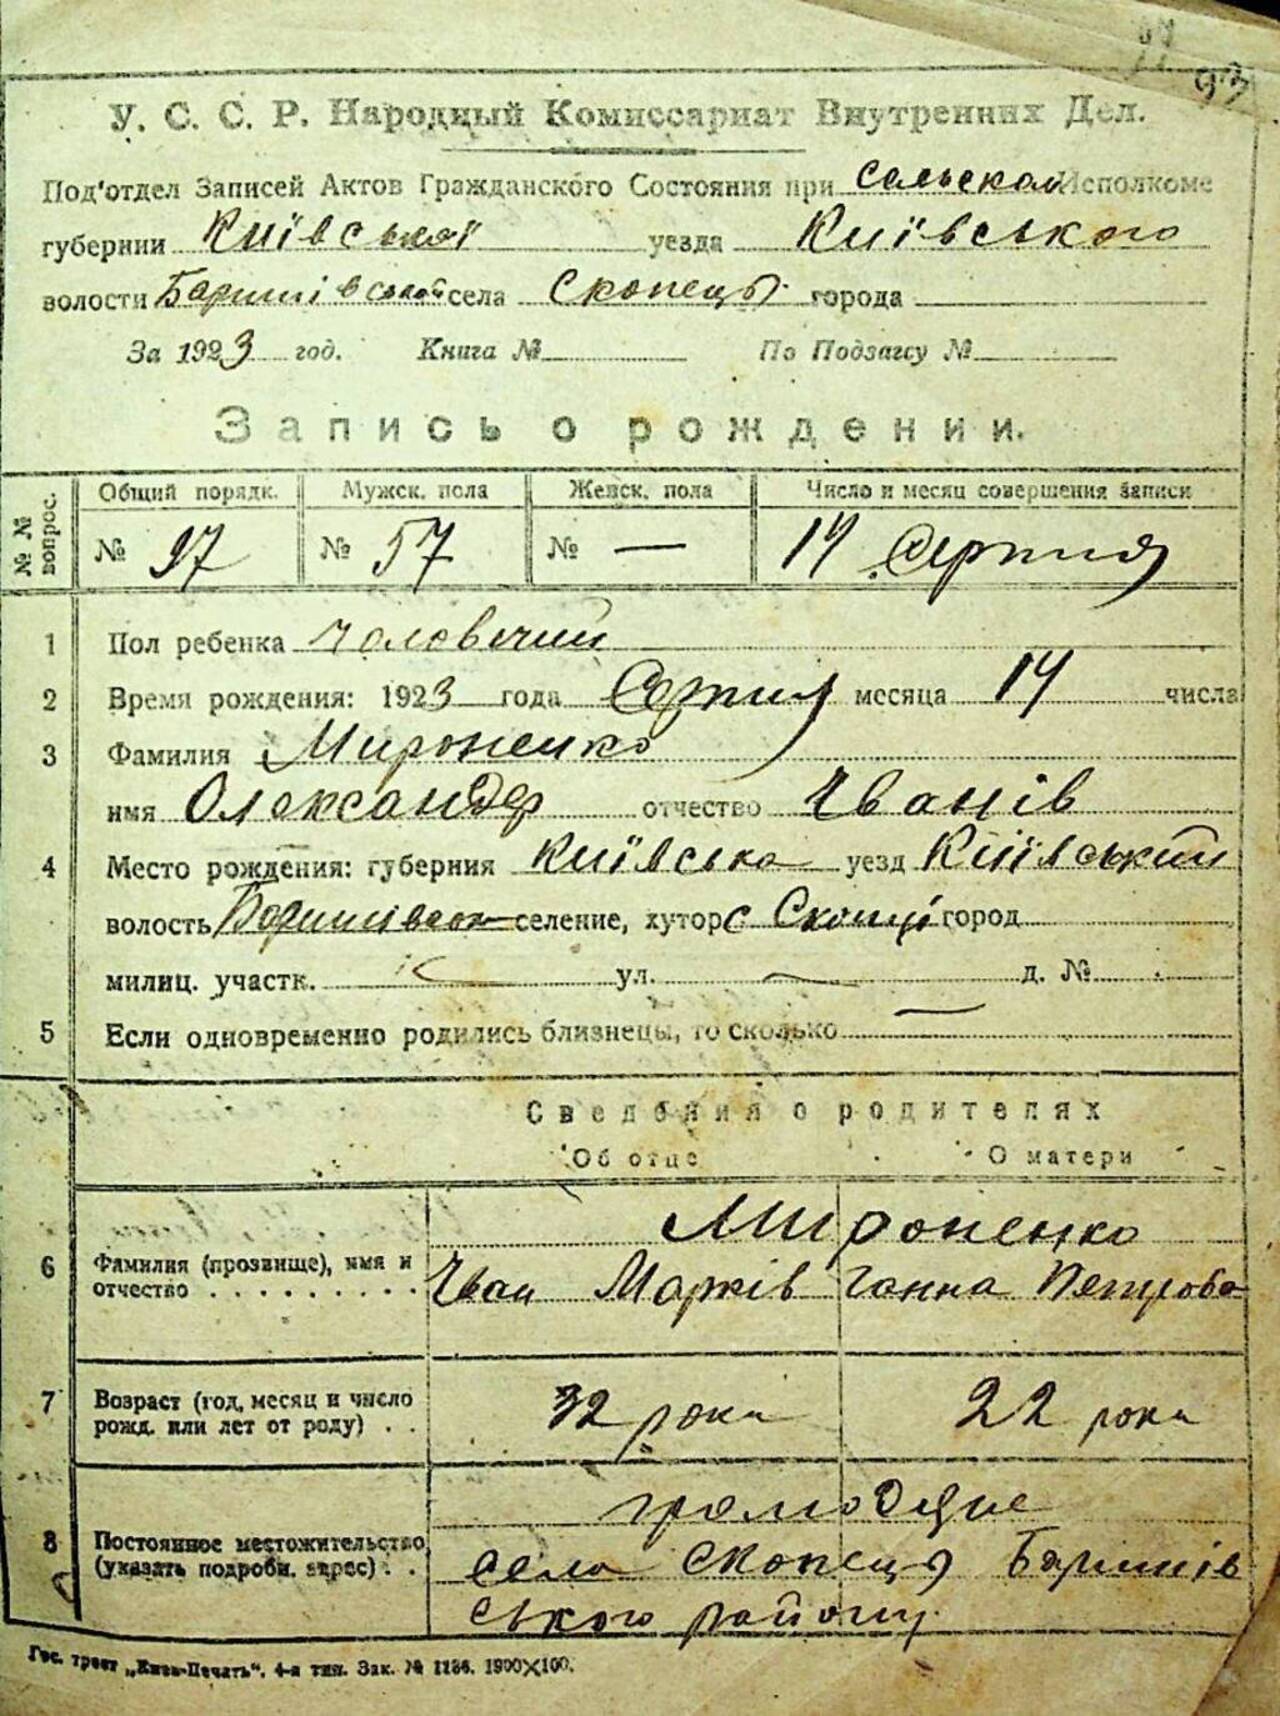 93
У. С. С. Р. Народный Комиссариат Внутренних Дел.
Под'отдел Записей Актов Гражданского Состояния при сельском Исполкоме
губернии Київської уезда Київського
волости Баришівської села Скопець города
За 1923 год. Книга № По Подзагсу №
Запись о рождении.
№ № вопрос. Общий порядк. Мужск. пола Женск. пола Число и месяц совершения записи
№ 97 № 57 № — 14 Серпня
1 Пол ребенка чоловечий
2 Время рождения: 1923 года Серпня месяца 14 числа
3 Фамилия Мироненко
имя Олександер отчество Іванів
4 Место рождения: губерния Київська уезд Київський
волость Баришівська селение, хутор с Скопці город
милиц. участк. — ул. — д. №
5 Если одновременно родились близнецы, то сколько —
Сведения о родителях
Об отце О матери
Мироненко
6 Фамилия (прозвище), имя и
отчество . . . . . . . . . Іван Марків Ганна Петрова
7 Возраст (год, месяц и число
рожд. или лет от роду) . . 32 роки 22 роки
громодяне
8 Постоянное местожительство
(указать подробн. адрес) . . села Скопець Баришів
ського району.
Гос. трест „Киев-Печать“. 4-я тип. Зак. № 1186. 1900×100.